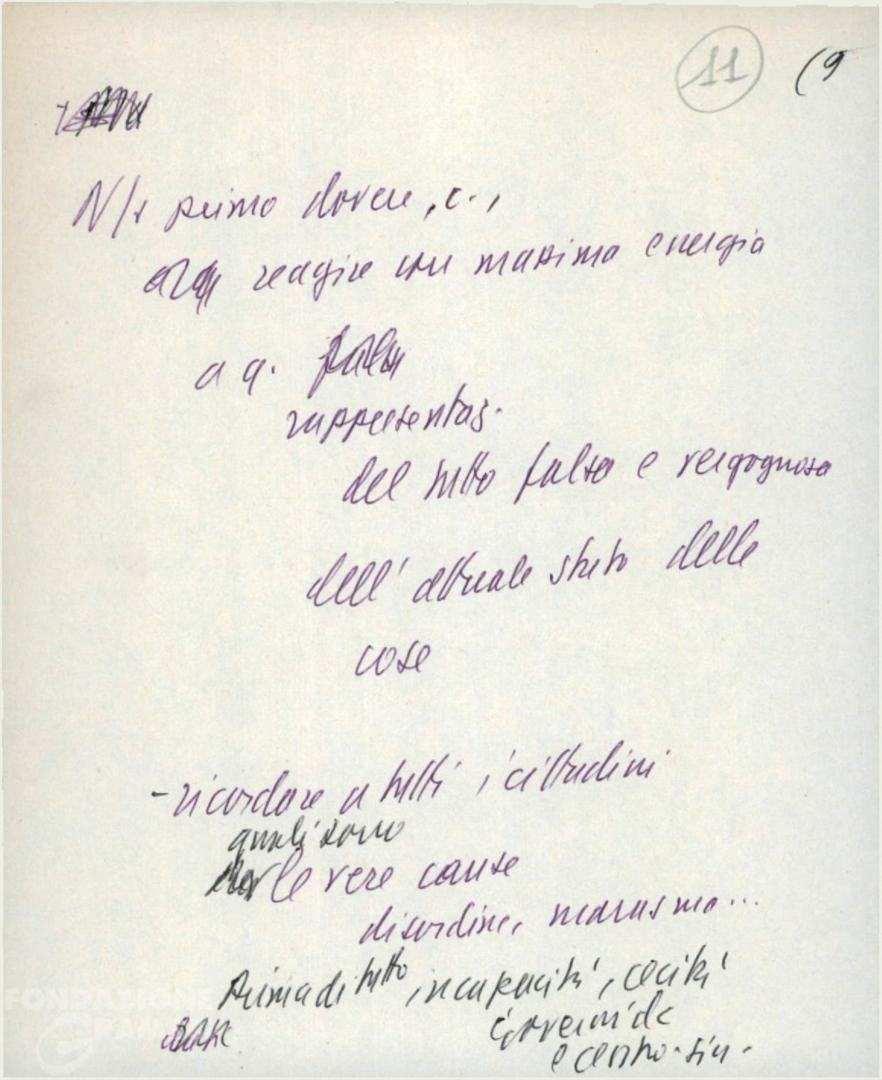 11 (9
N/r primo dovere, c.,
reagire con massima energia
a q.
rappresentaz.
del tutto falsa e vergognosa
dell'attuale stato delle
cose
- ricordare a tutti i cittadini
quali sono
le vere cause
disordine, marasma...
Prima di tutto, incapacità, cecità
governi dc
e centro-sin.
FONDAZIONE